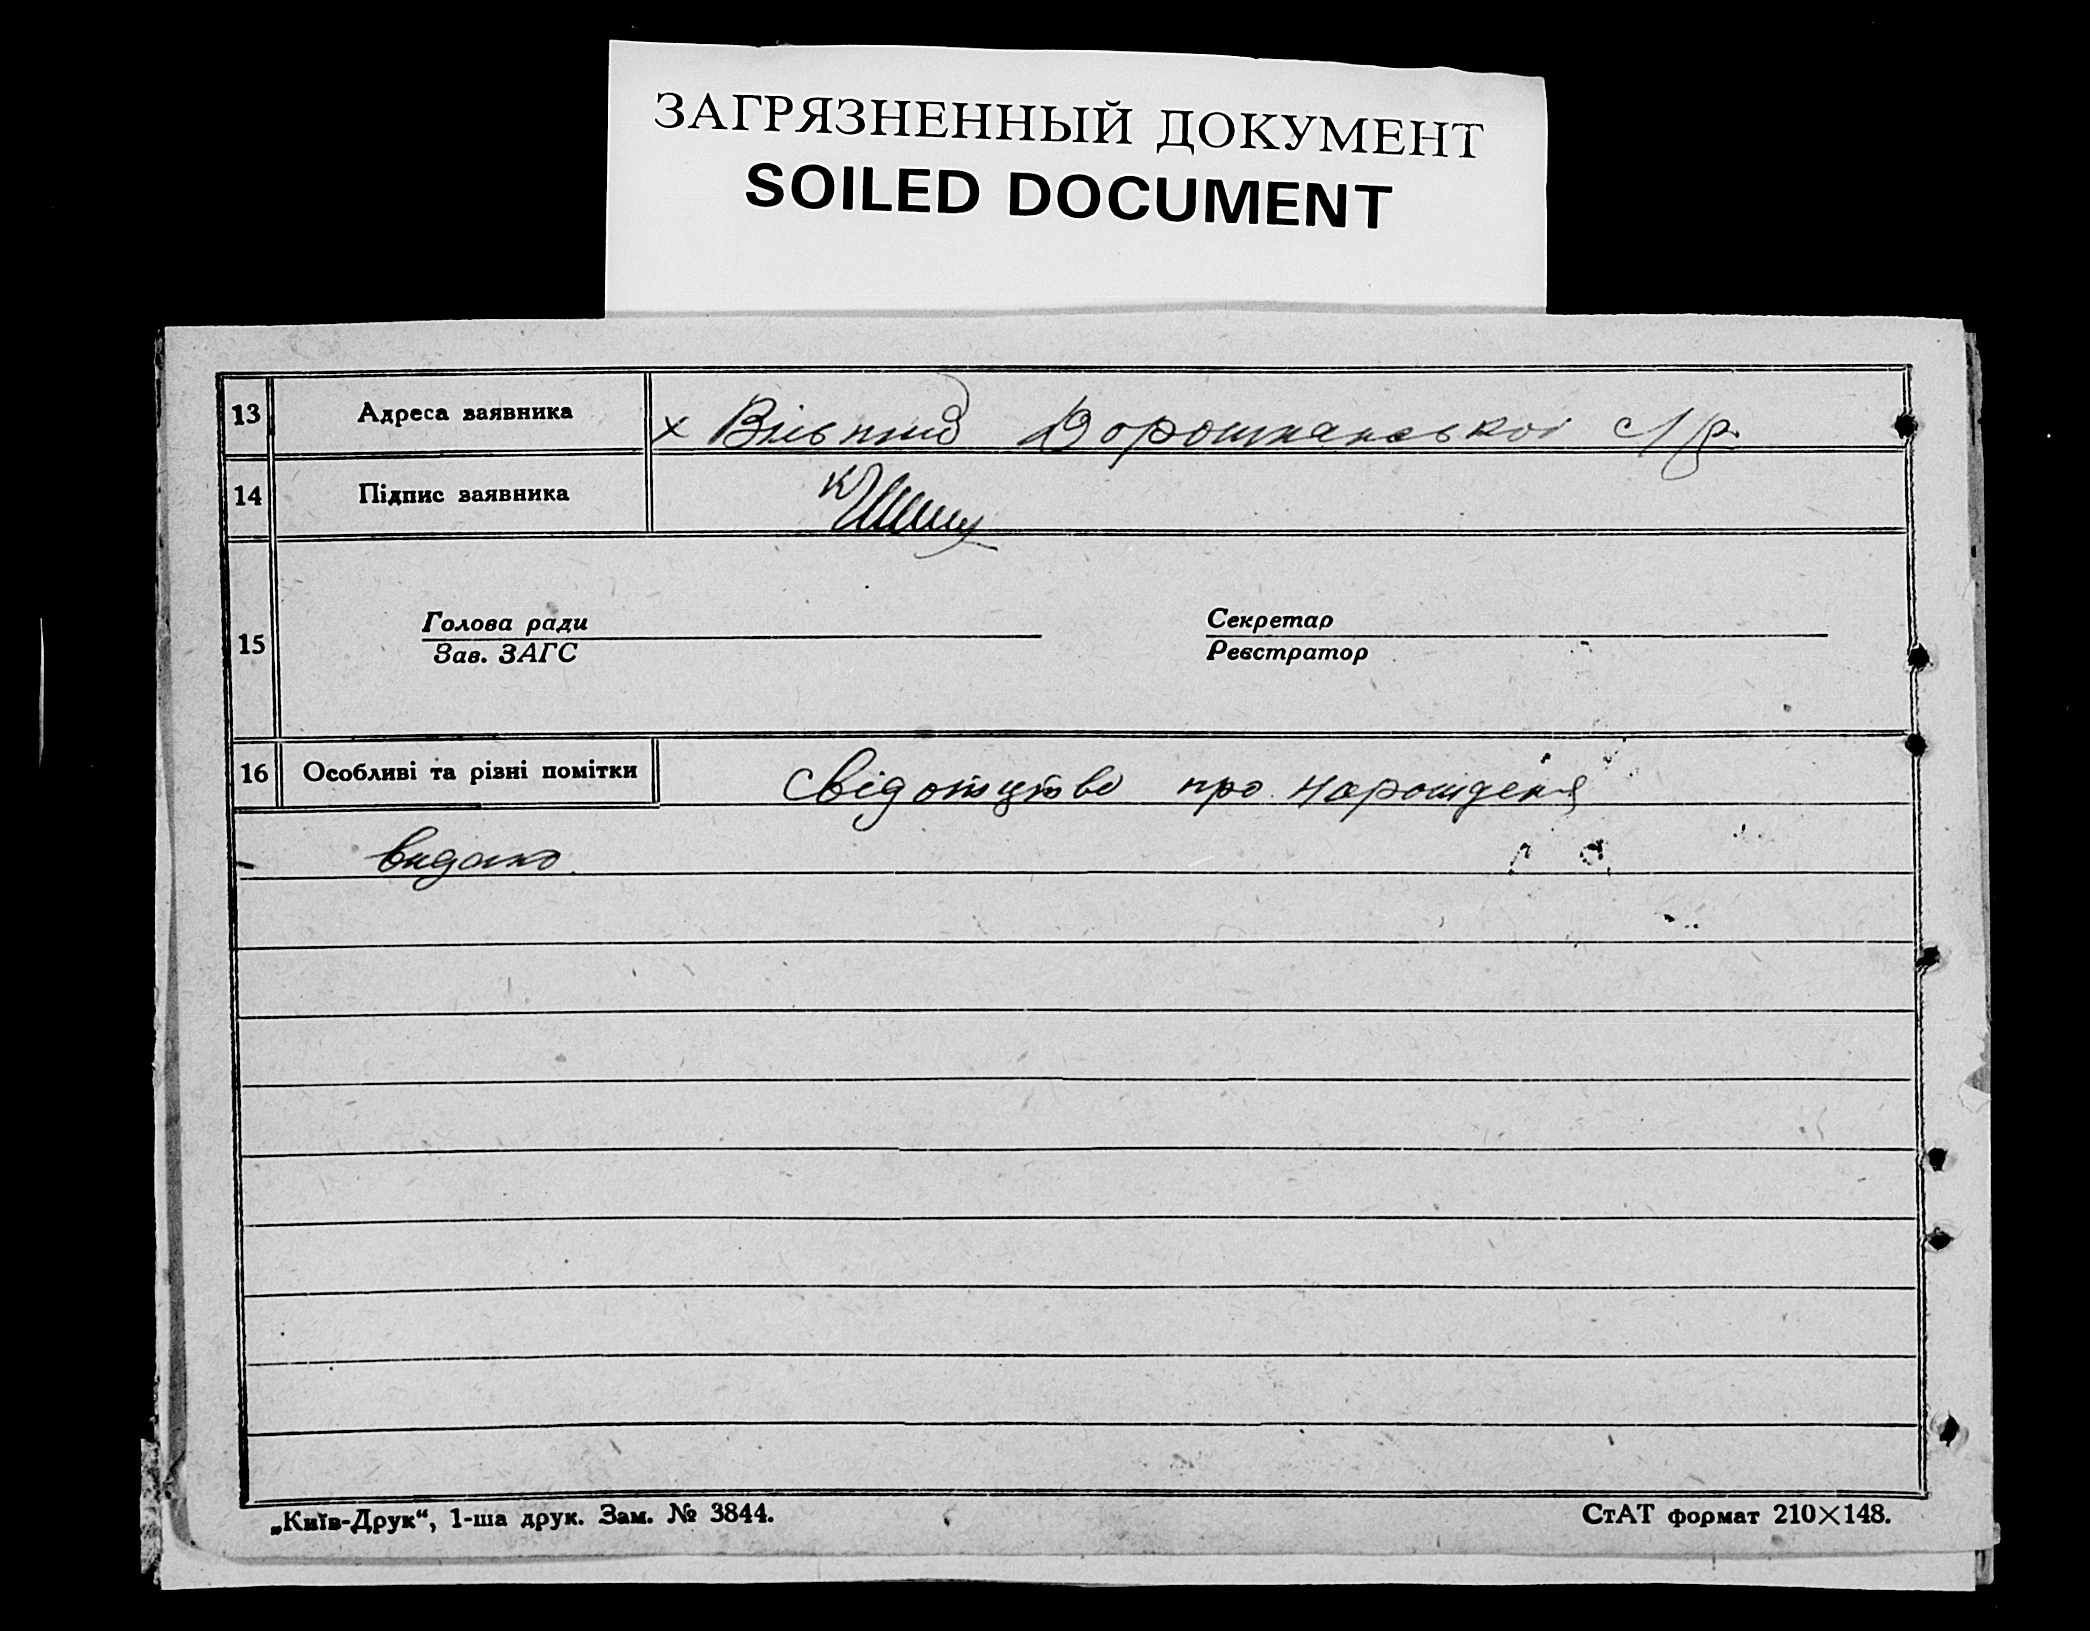 ЗАГРЯЗНЕННЫЙ ДОКУМЕНТ
SOILED DOCUMENT
13 Адреса заявника х
14 Підпис заявника
15 Голова ради Секретар
Зав. ЗАГС Реєстратор
16 Особливі та різні помітки Свідотцтво про нарождєня
видано
„Київ-Друк“, 1-ша друк. Зам. № 3844. СтАТ формат 210×148.